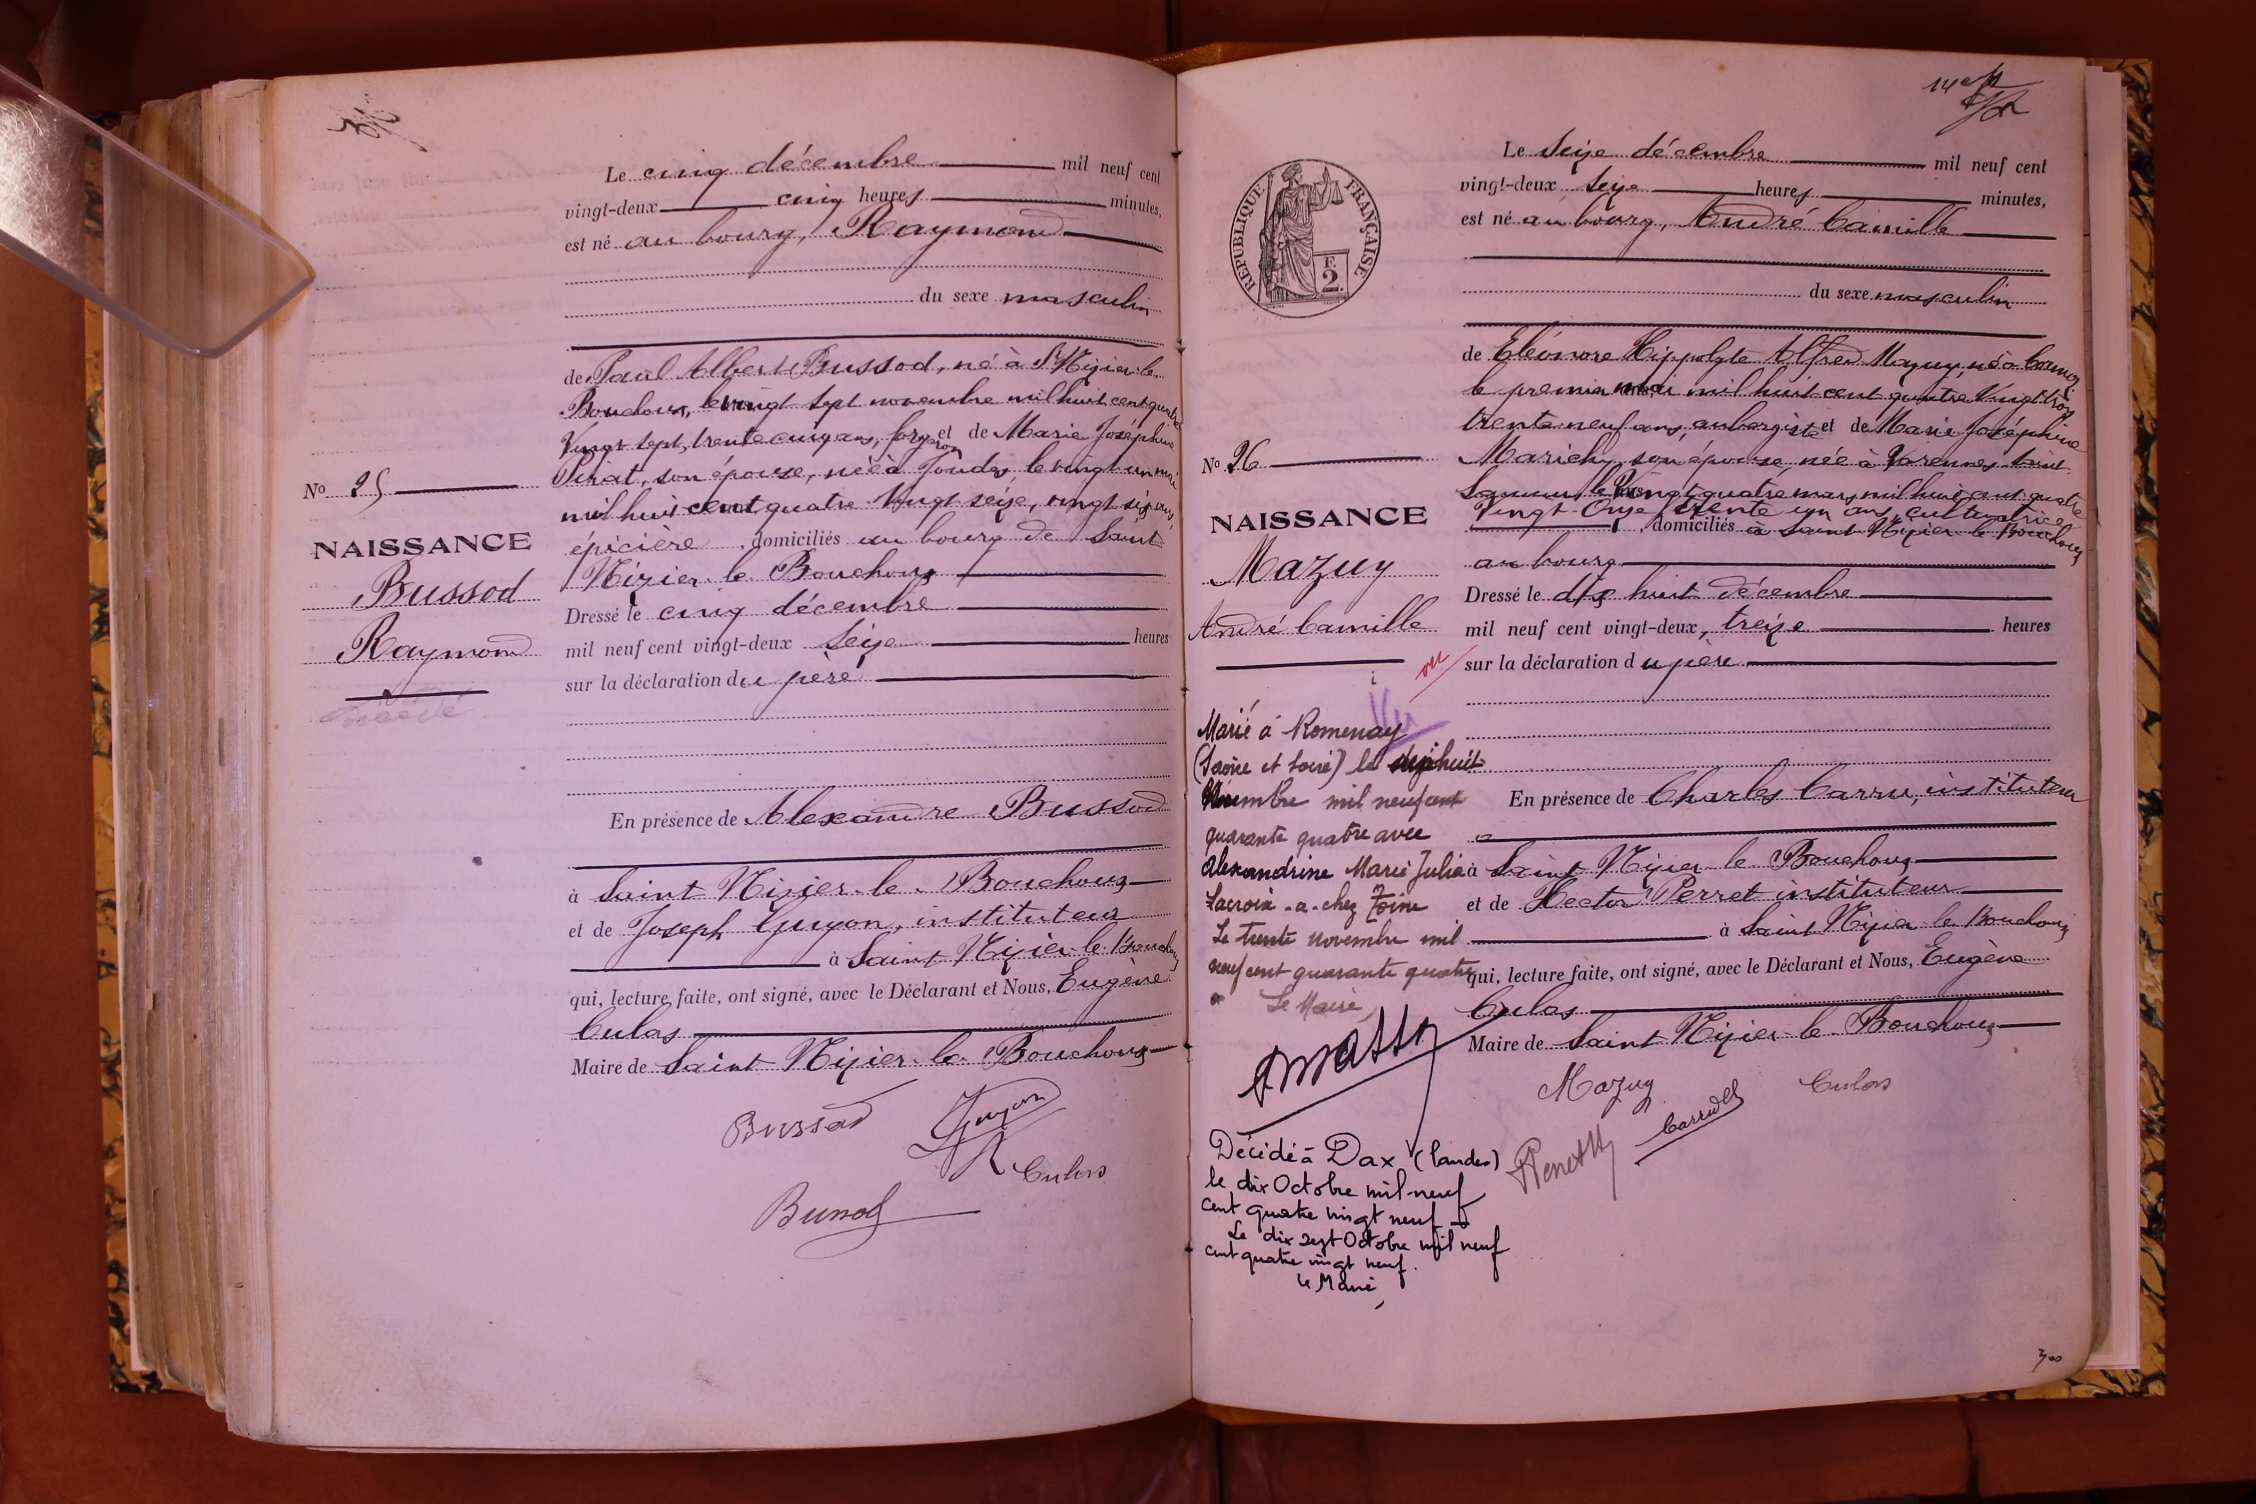 Le cinq décembre mil neuf cent
vingt-deux cinq heures minutes,
est né au bourg, Raymond
du sexe masculin
de Paul Albert Bussod, né à St Nizier-le-
Bouchoux, le vingt sept novembre mil huit cent quatre
Vingt sept, trente cinq ans, forgeron et de Marie Joséphine
Pirat, son épouse, née à Joudes, le vingt un mai
mil huit cent quatre Vingt seize, vingt six ans,
épicière, domiciliés au bourg de Saint
Nizier le Bouchoux
Dressé le cinq décembre
mil neuf cent vingt-deux Seize heures
sur la déclaration du père
En présence de Alexandre Bussod
à Saint Nizier-le-Bouchoux
et de Joseph Guyon, instituteur
à Saint Nizier-le-Bouchoux
qui, lecture faite, ont signé, avec le Déclarant et Nous, Eugène
Culas
Maire de Saint Nizier-le-Bouchoux
Bussod Guyon
Culas
Bussod
No 25
NAISSANCE
Bussod
Raymond
14e
RÉPUBLIQUE FRANÇAISE
F.
2.
Le Seize décembre mil neuf cent
vingt-deux Seize heures minutes,
est né au bourg, André Camille
du sexe masculin
de Eléonore Hippolyte Alfred Mazuy, né à Cormoz
le premier mai mil huit cent quatre Vingt trois
trente neuf ans, aubergiste et de Marie Joséphine
Marichy, son épouse, née à Varennes Saint
Sauveur, le Vingt quatre mars mil huit cent quatre
Vingt Onze, trente un ans, cultivatrice
, domiciliés à Saint Nizier-le-Bouchoux
au bourg
Dressé le dix huit décembre
mil neuf cent vingt-deux, treize heures
sur la déclaration du père
En présence de Charles Carru, instituteur
à Saint Nizier le Bouchoux
et de Hector Perret instituteur
à Saint Nizier le Bouchoux
qui, lecture faite, ont signé, avec le Déclarant et Nous, Eugène
Culas
Maire de Saint Nizier-le-Bouchoux
Mazuy Culas
Carru
Perret
No 26
NAISSANCE
Mazuy
André Camille
vu
Vu
Marié à Romenay
(Saône et Loire) le dix huit
Novembre mil neuf cent
quarante quatre avec
Alexandrine Marie Julia
Lacroix -a- chez Toine
Le trente novembre mil
neuf cent quarante quatre
Le Maire,
Décédé à Dax (Landes)
le dix Octobre mil neuf
cent quatre vingt neuf
Le dix sept Octobre mil neuf
cent quatre vingt neuf.
Le Maire,
300